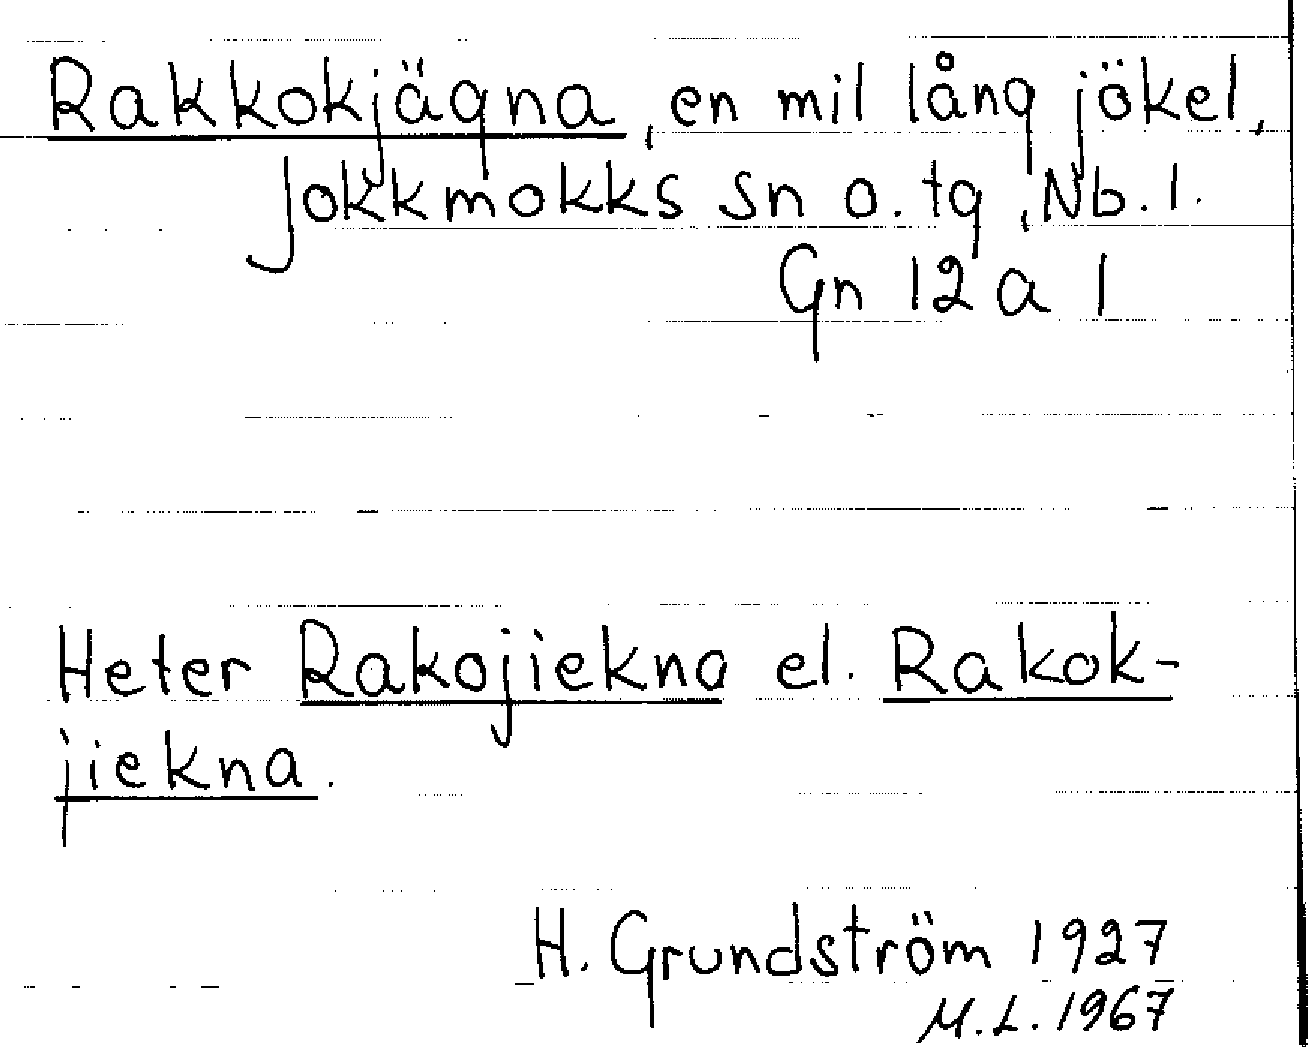 Rakkokjägna, en mil lång jökel,
Jokkmokks sn o. tg, Nb. l.
Gn 12 a 1
Heter Rakojiekna el. Rakok-
jiekna.
H. Grundström 1927
M.L. 1967